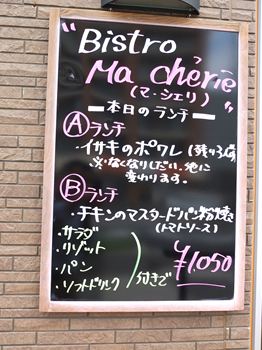 "Bistro
Ma chérie"
(マ・シェリ)
本日のランチ
Ⓐランチ
・イサキのポワレ(残り3食)
※なくなりしだい、他に
変わります。
Ⓑランチ
・チキンのマスタードパン粉焼
(トマトソース)
・サラダ
・リゾット
・パン
・ソフトドリンク
付きで
¥1,050